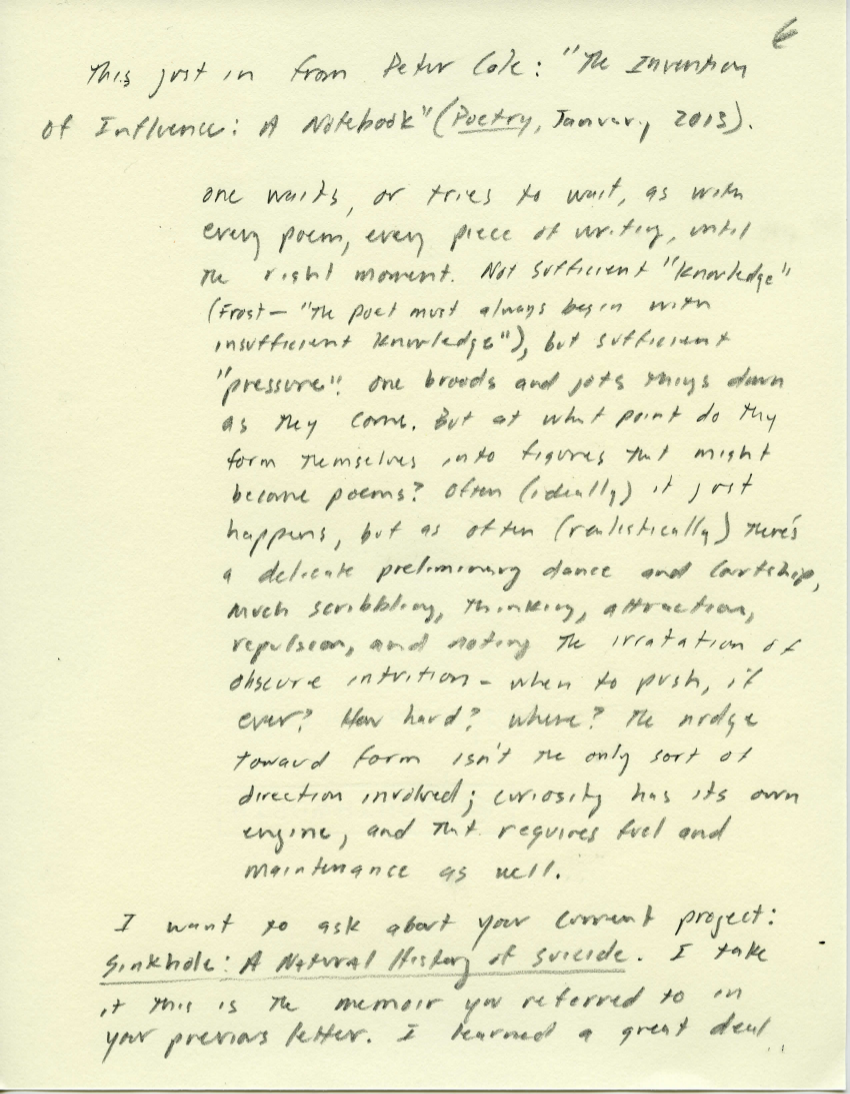 6
This just in from Peter Cole: "The Invention
of Influence: A Notebook" (Poetry, January, 2013).
one waits, or tries to wait, as with
every poem, every piece of writing, until
the right moment. Not sufficient "knowledge"
(Frost— "the poet must always begin with
insufficient knowledge"), but sufficient
"pressure". One broods and jots things down
as they come. But at what point do they
form themselves into figures that might
become poems? Often (ideally) it just
happens, but as often (realistically) there's
a delicate preliminary dance and courtship,
much scribbling, thinking, attraction,
repulsion, and noting the irratation of
obscure intuition – when to push, if
ever? How hard? Where? The nudge
toward form isn't the only sort of
direction involved; curiosity has its own
engine, and that requires fuel and
maintenance as well.
I want to ask about your current project:
Sinkhole: A Natural History of Suicide. I take
it this is the memoir you referred to in
your previous letter. I learned a great deal